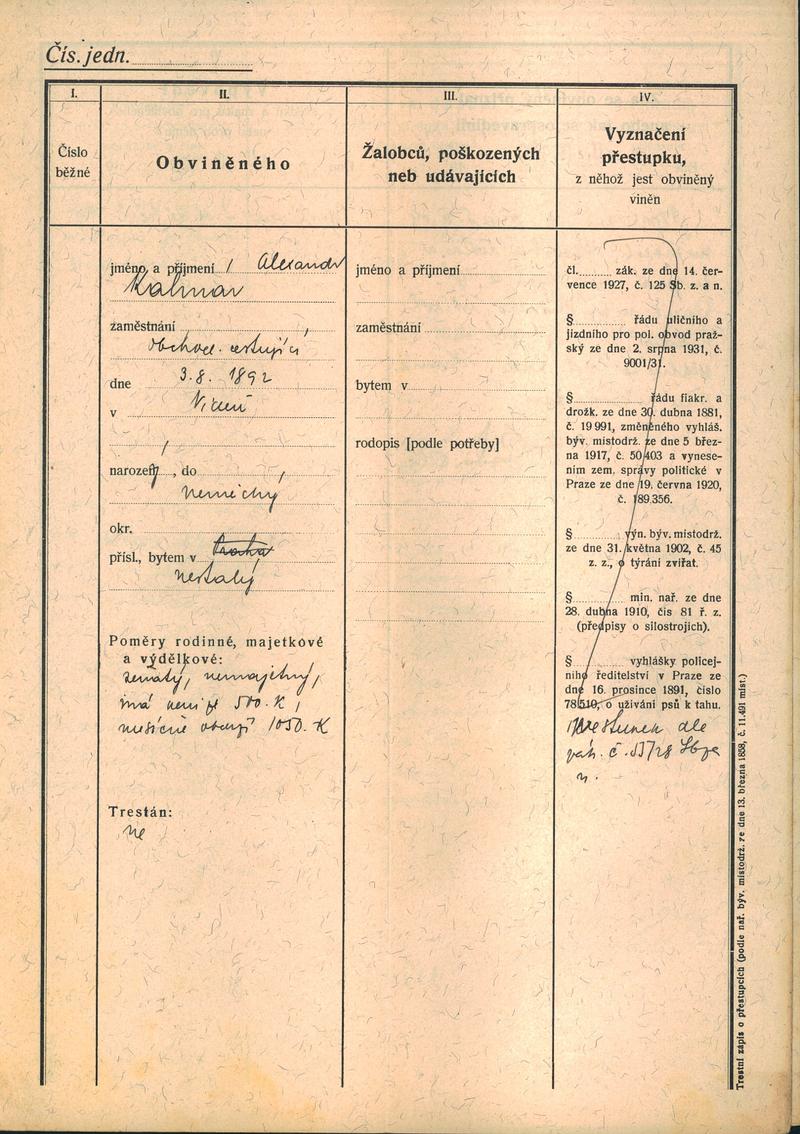 Čís. jedn.
I.
II.
III.
IV.
Číslo
běžné
Obviněného
Žalobců, poškozených
neb udávajících
Vyznačení
přestupku,
z něhož jest obviněný
viněn
jméno a příjmení Alexandr
zaměstnání
Obchod. cestující
dne 3.8. 1892
v Vídni
narozený, do
Německy
okr.
přísl., bytem v
nestalý
Poměry rodinné, majetkové
a výdělkové:
ženatý, nemajetný,
má 500.K,
měsíčně 1050.K
Trestán:
ne
jméno a příjmení
zaměstnání
bytem v
rodopis [podle potřeby]
čl. zák. ze dne 14. čer-
vence 1927, č. 125 Sb. z. a n.
§ řádu uličního a
jízdního pro pol. obvod praž-
ský ze dne 2. srpna 1931, č.
9001/31.
§ řádu fiakr. a
drožk. ze dne 30. dubna 1881,
č. 19 991, změněného vyhláš.
býv. místodrž. ze dne 5 břez-
na 1917, č. 50/403 a vynese-
ním zem. správy politické v
Praze ze dne 19. června 1920,
č. 189.356.
§ výn. býv. místodrž.
ze dne 31. května 1902, č. 45
z. z., o týrání zvířat.
§ min. nař. ze dne
28. dubna 1910, čís 81 ř. z.
(předpisy o silostrojích).
§ vyhlášky policej-
ního ředitelství v Praze ze
dne 16. prosince 1891, číslo
78510, o užívání psů k tahu.
Přestupek dle
n.
Trestní zápis o přestupcích (podle nař. býv. místodrž. ze dne 13. března 1858, č. 11.491 míst.)